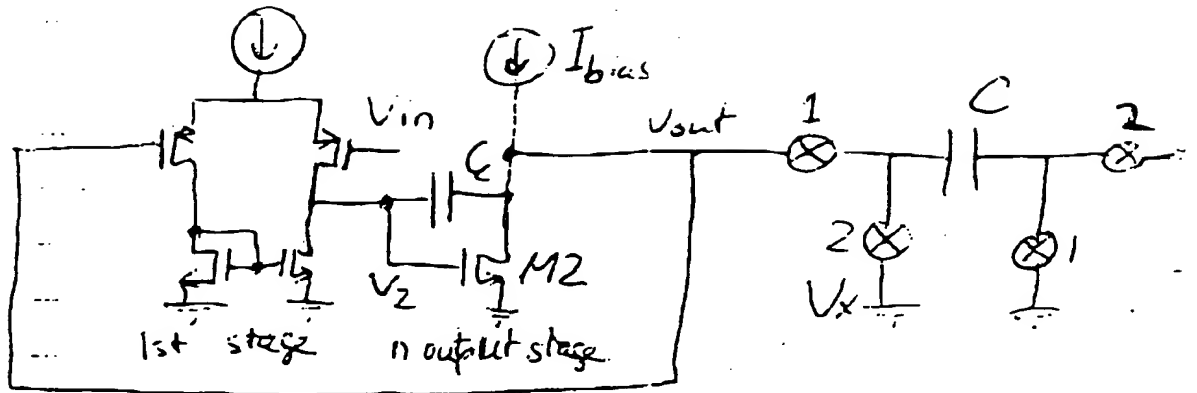 I bias
Vin
Vout
1
C
2
C
2
1
V2
M2
Vx
1st stage
n output stage